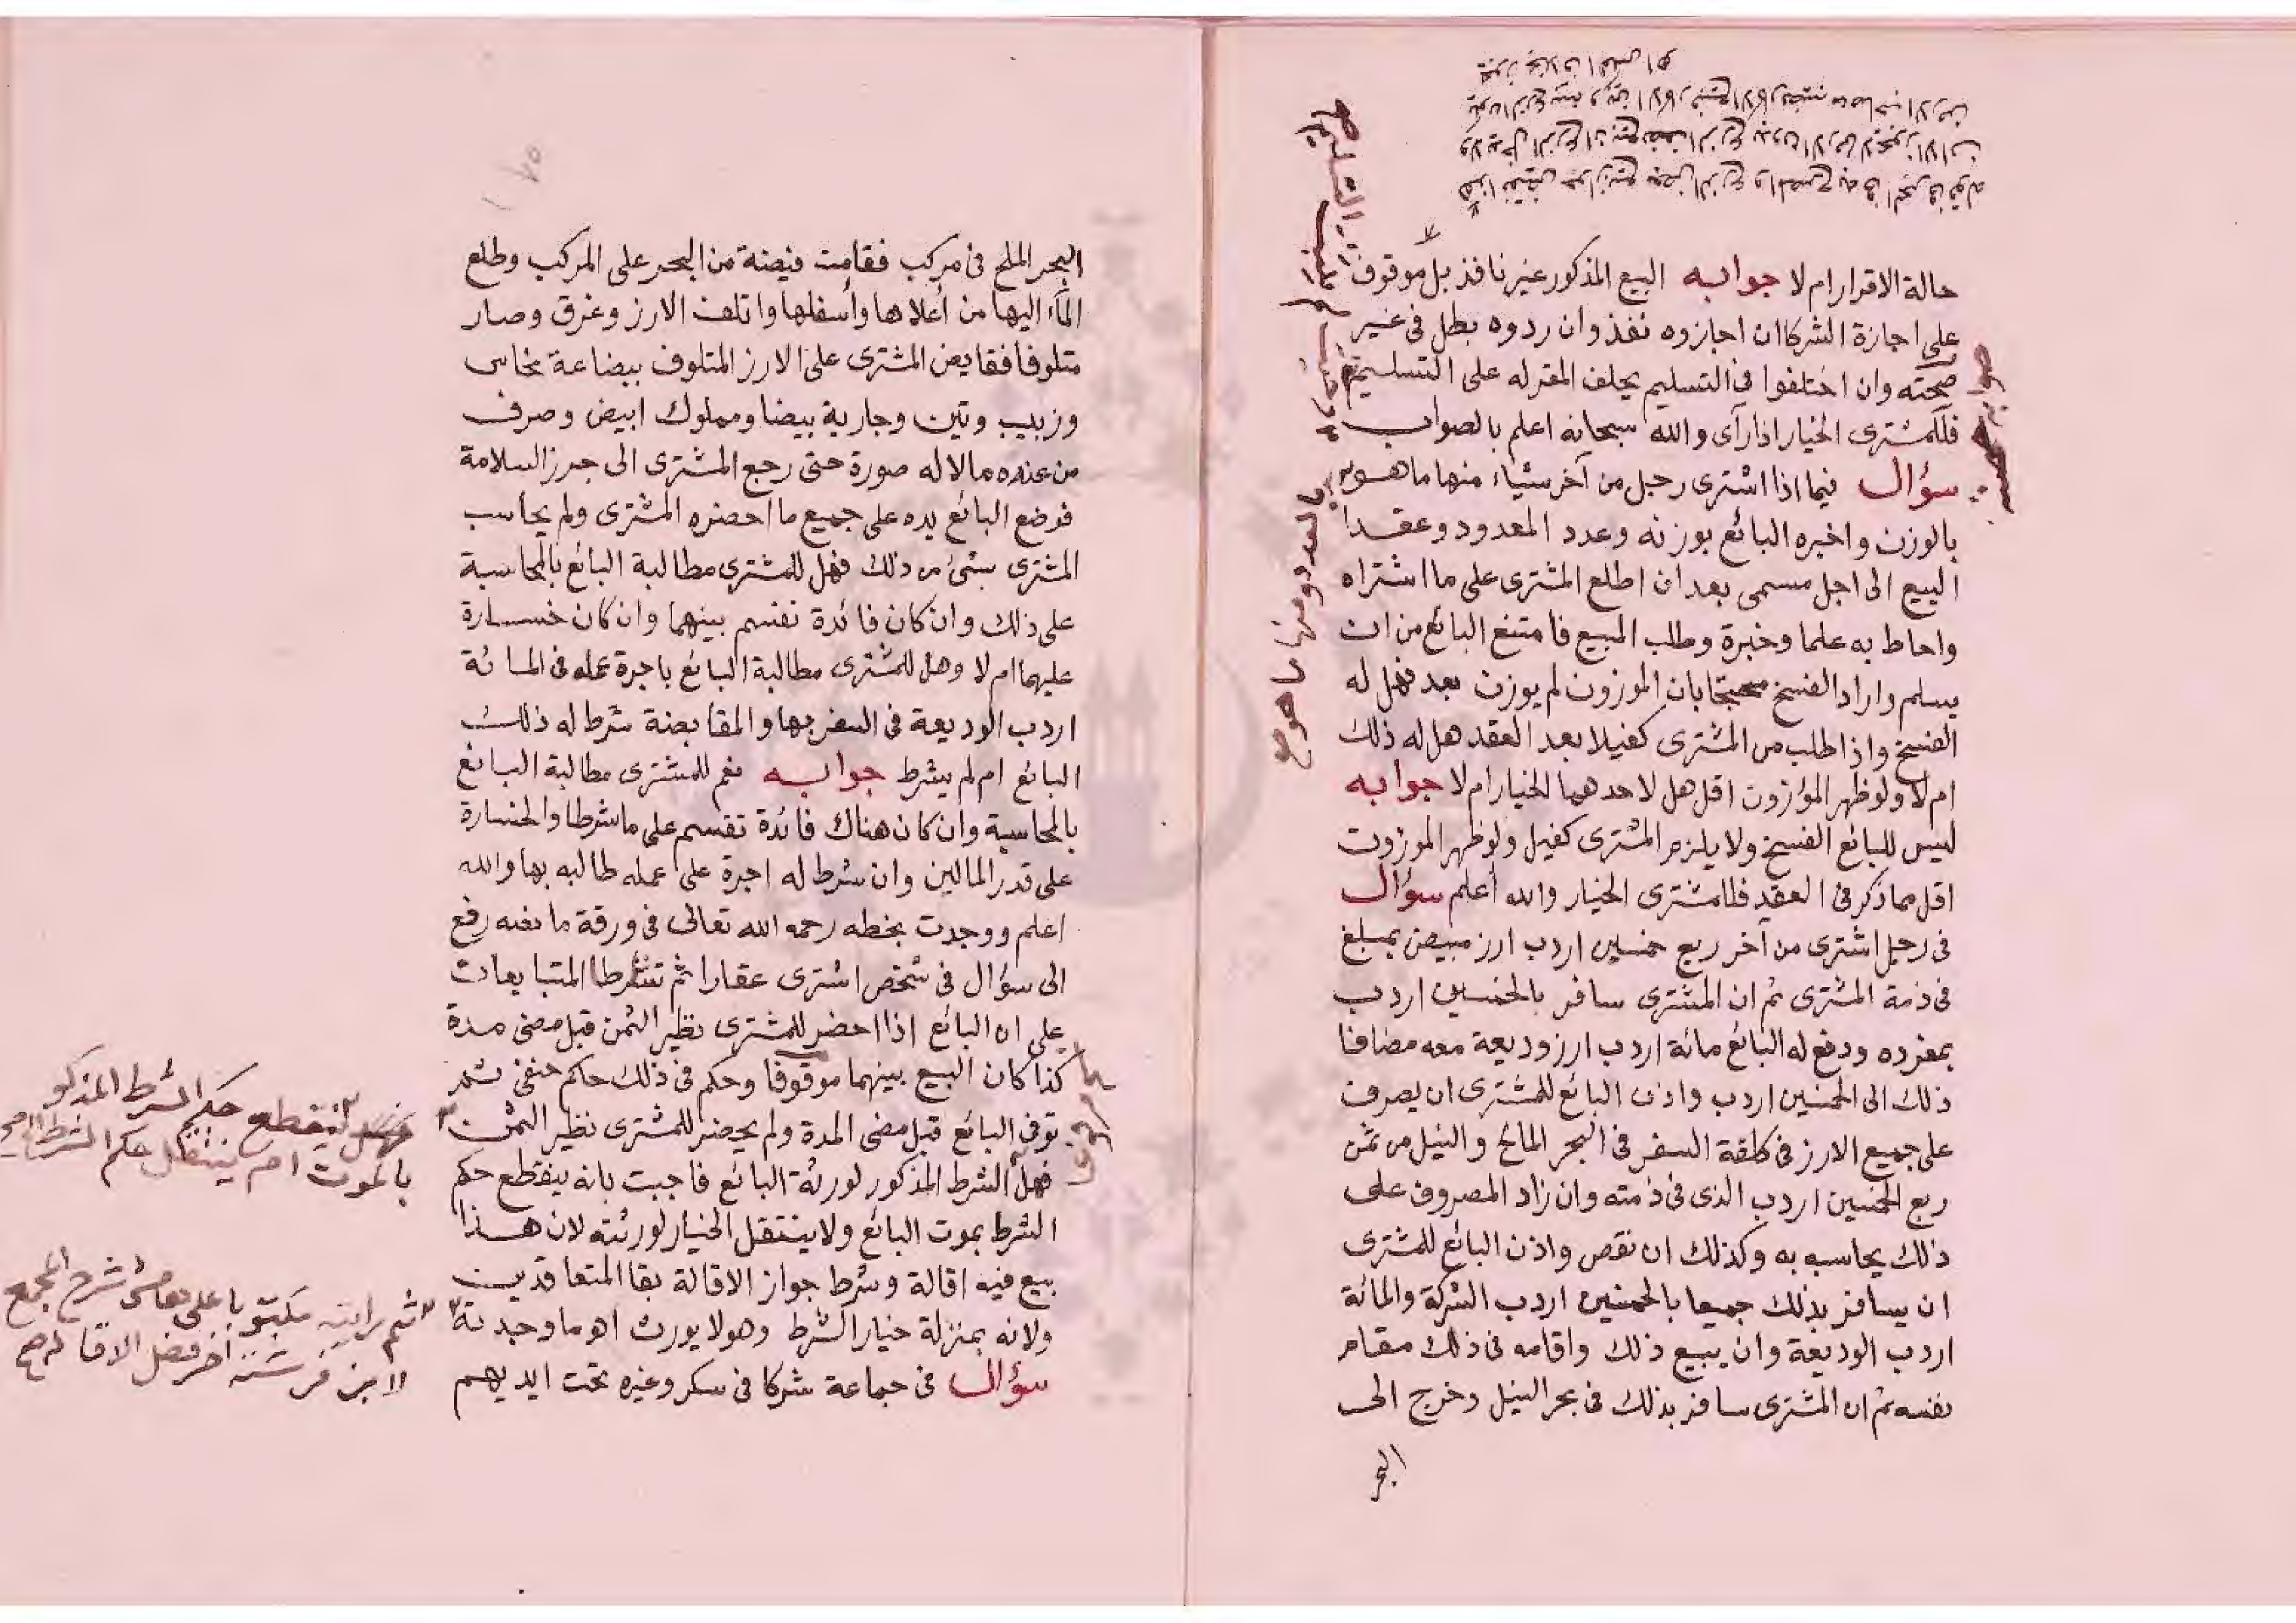 حالة الاقرار ام لا جوابه البيع المذكور غير نافذ بل موقوف
على اجازة الشركا ان اجازوه نفذ وان ردوه بطل فى غير
صحته وان اختلفوا فى التسليم يحلف المقر له على التسليم
فللمشترى الخيار اذا رآى والله سبحانه اعلم بالصواب
سؤال فيما اذا اشترى رجل من آخر شياء منها ما هو
بالوزن واخبره البائع بوزنه وعدد المعدود وعقدا
البيع الى اجل مسمى بعد ان اطلع المشترى على ما اشتراه
واحاط به علما وخبرة وطلب المبيع فامتنع البائع من ان
يسلم واراد الفسخ محتجا بان الموزون لم يوزن بعد فهل له
الفسخ واذا طلب من المشترى كفيلا بعد العقد هل له ذلك
ام لا ولو ظهر الموزون اقل هل لاحدهما الخيار ام لا جوابه
ليس للبائع الفسخ ولا يلزم المشترى كفيل ولو ظهر الموزون
اقل مما ذكر فى العقد فللمشترى الخيار والله أعلم سؤال
فى رجل اشترى من آخر ربع خمسين اردب ارز مبيض بمبلغ
فى ذمة المشترى ثم ان المشترى سافر بالخمسين اردب
بمفرده ودفع له البائع مائة اردب ارز وديعة معه مضافا
ذلك الى الخمسين اردب واذن البائع للمشترى ان يصرف
على جميع الارز فى كلفة السفر فى البحر المالح والنيل من ثمن
ربع الخمسين اردب الذى فى ذمته وان زاد المصروف على
ذلك يحاسبه به وكذلك ان نقص واذن البائع للمشترى
ان يسافر بذلك جميعا بالخمسين اردب الشركة والمائة
اردب الوديعة وان يبيع ذلك واقامه فى ذلك مقام
نفسه ثم ان المشترى سافر بذلك فى بحر النيل وخرج الى
البحر
بالمعدود ومنها ما هو
البحر الملح فى مركب فقامت فيضة من البحر على المركب وطلع
المآء اليها من أعلاها وأسفلها واتلف الارز وغرق وصار
متلوفا فقايض المشترى على الارز المتلوف ببضاعة نحاس
وزبيب وتين وجارية بيضا ومملوك ابيض وصرف
من عنده مالا له صورة حتى رجع المشترى الى جهة السلامة
فوضع البائع يده على جميع ما احضره المشترى ولم يحاسب
المشترى بشئ من ذلك فهل للمشترى مطالبة البائع بالمحاسبة
على ذلك وان كان فائدة تقسم بينهما وان كان خسارة
عليهما ام لا وهل للمشترى مطالبة البائع باجرة عمله فى المائة
اردب الوديعة فى السفر بها والمقايضة شرط له ذلك
البائع ام لم يشرط جوابه نعم للمشترى مطالبة البائع
بالمحاسبة وان كان هناك فائدة تقسم على ما شرطا والخسارة
على قدر المالين وان شرط له اجرة على عمله طالبه بها والله
اعلم ووجدت بخطه رحمه الله تعالى فى ورقة ما نصه رفع
الى سؤال فى شخص اشترى عقارا ثم تشارطا المتبايعان
على ان البائع اذا احضر للمشترى نظير الثمن قبل مضى مدة
كذا كان البيع بينهما موقوفا وحكم فى ذلك حاكم حنفى ثم
توفى البائع قبل مضى المدة ولم يحضر للمشترى نظير الثمن
فهل الشرط المذكور لورثة البائع فاجبت بانه ينقطع حكم
الشرط بموت البائع ولا ينتقل الخيار لورثته لان هذا
بيع فيه اقالة وشرط جواز الاقالة بقا المتعاقدين
ولانه بمنزلة خيار الشرط وهو لا يورث اهـ ما وجدته
سؤال فى جماعة شركا فى سكر وغيره تحت ايديهم
ينقطع حكم الشرط المذكور
بالموت ام ينتقل حكم الشرط
ثم رايته مكتوبا على هامش شرح المجمع
لابن فرشته آخر فصل الاقالة صح